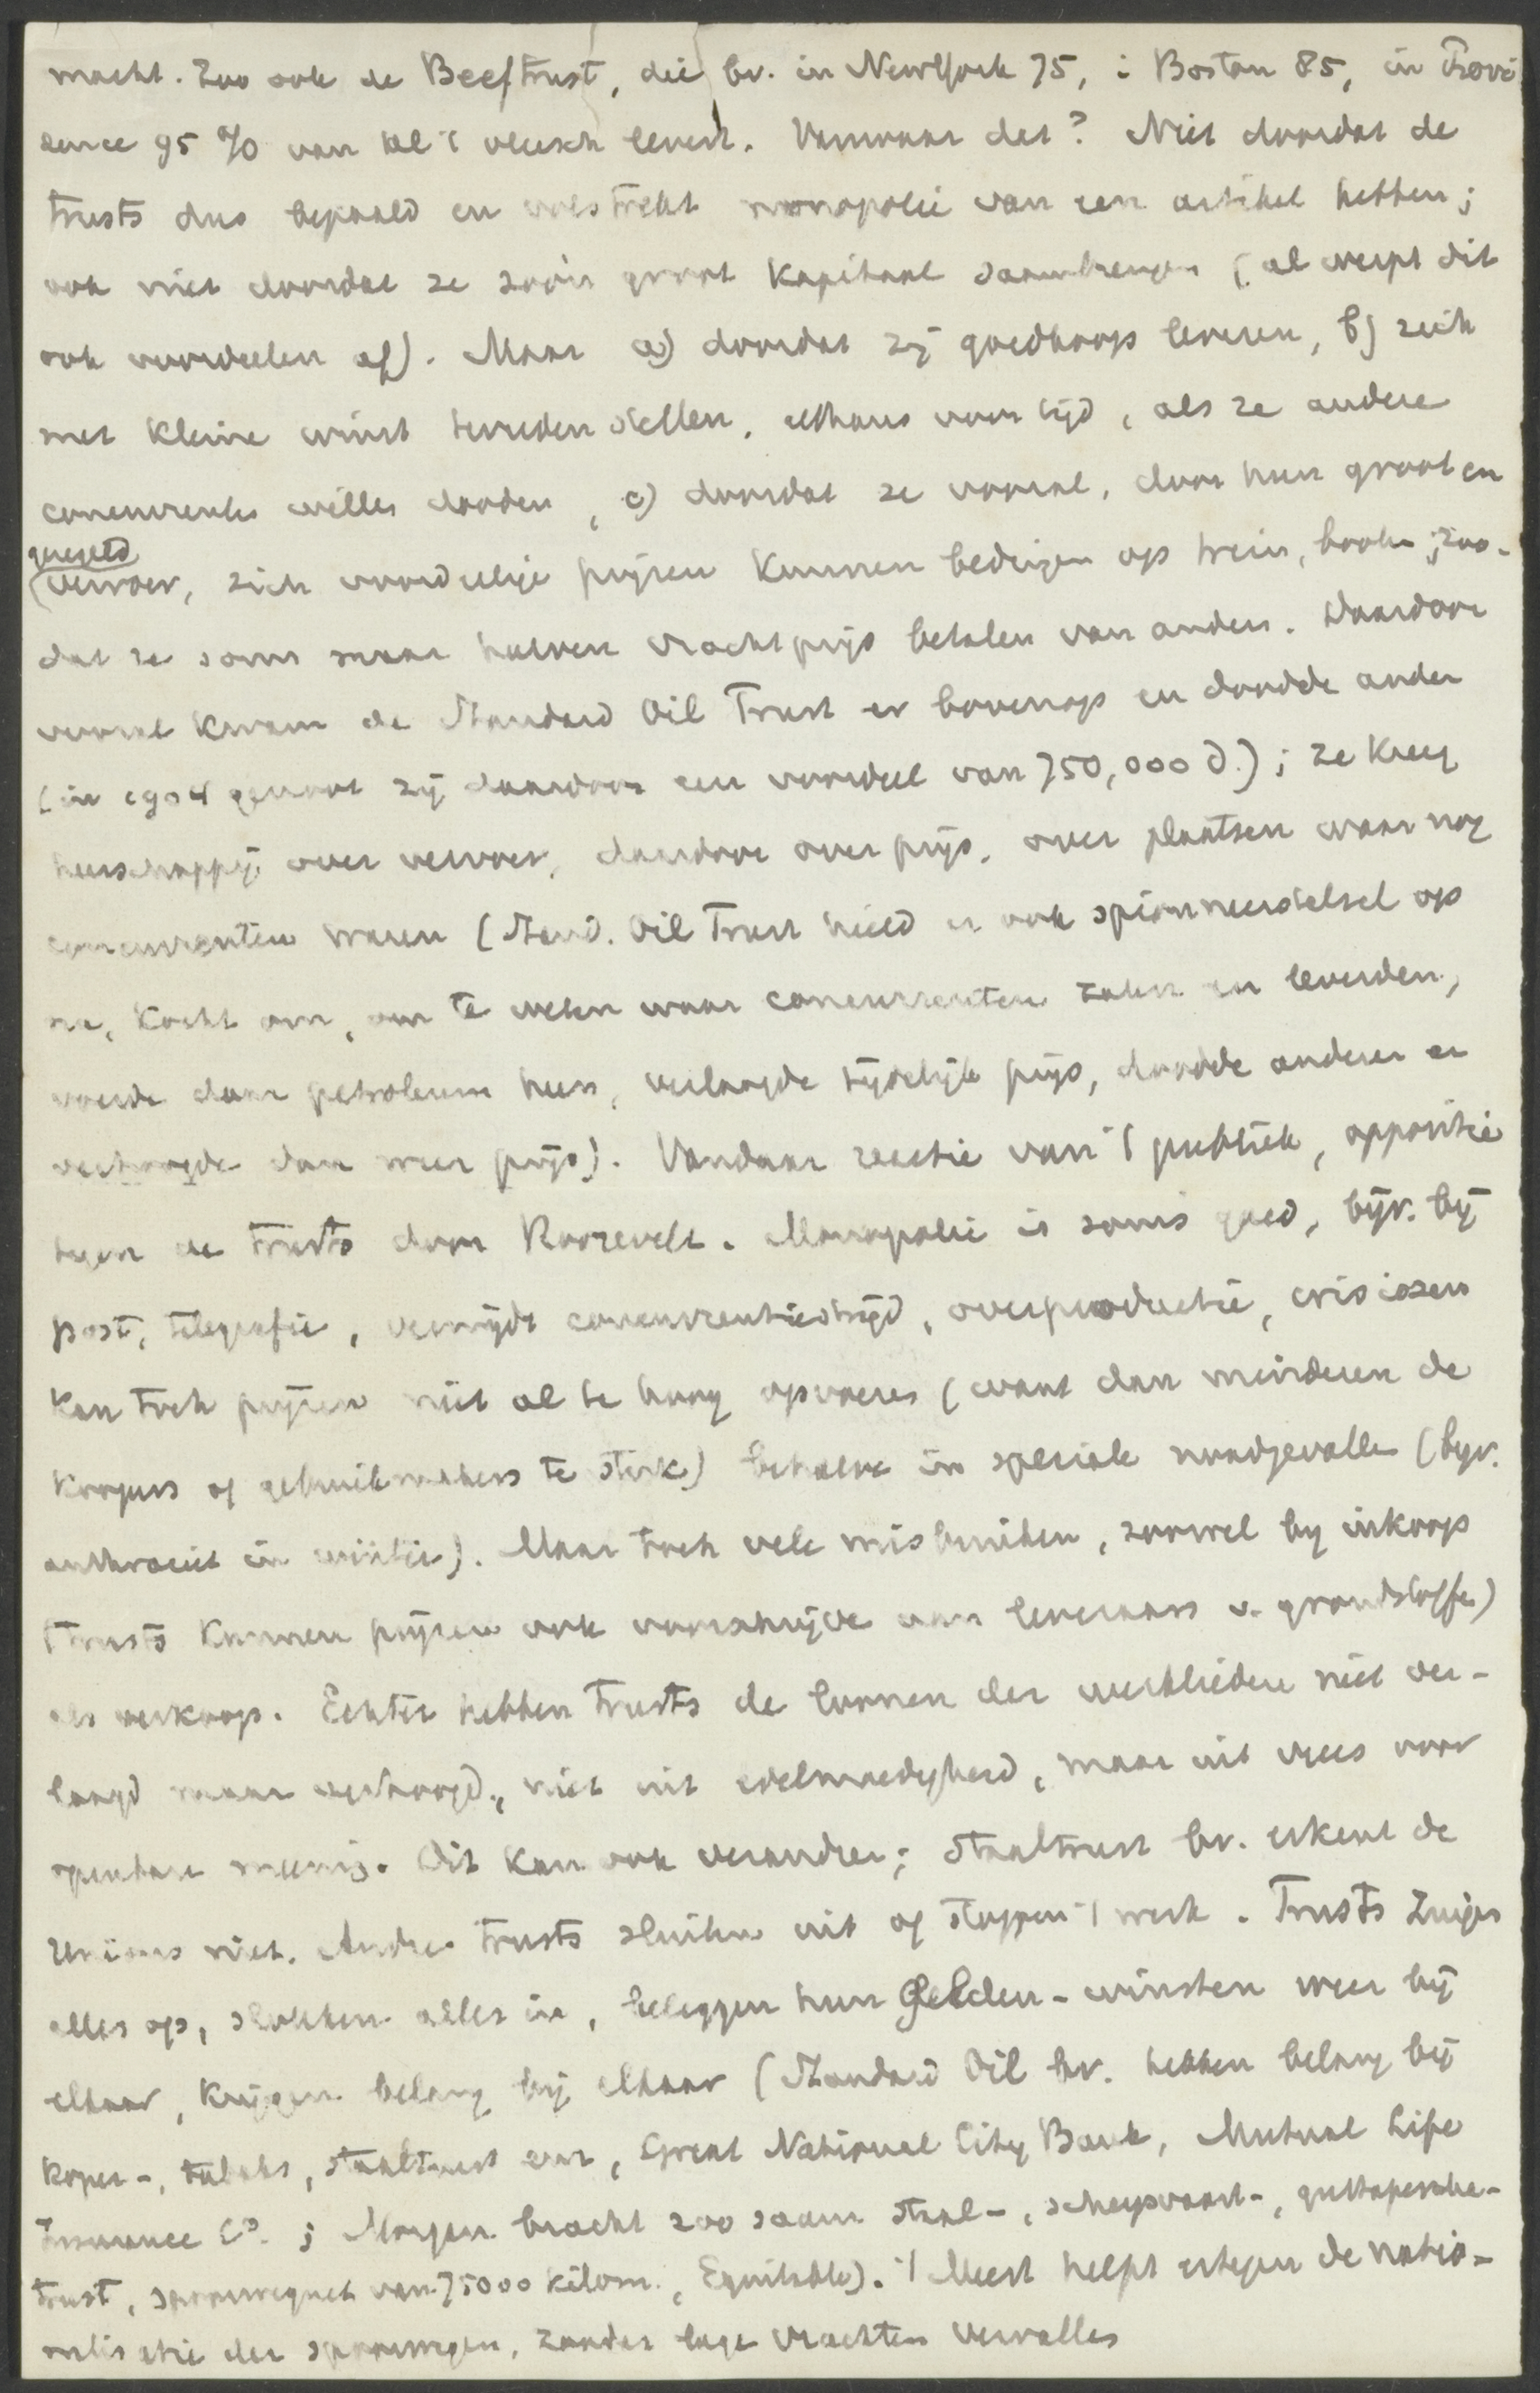 macht. Zoo ook de Beeftrust, die bv. in NewYork 75, i Boston 85, in Provi
dence 95 % van al 't vleesch levert. Vanwaar dat? Niet doordat de
trusts dus bepaald en volstrekt monopolie van een artikel hebben;
ook niet doordat ze zoo'n groot kapitaal saambrengen (al werpt dit
ook voordeelen af). Maar a) doordat zij goedkoop leveren, b) zich
met kleine winst tevreden stellen, althans voor tijd, als ze andere
concurrents willen dooden, c) doordat ze vooral, door hun groot en
geregeld
vervoer, zich voordeelige prijzen kunnen bedingen op trein, boote; zoo-
dat ze soms maar halven vrachtprijs betalen van anderen. Daardoor
vooral kwam de Standard Oil Trust er bovenop en doodde ander
(in 1904 genoot zij daardoor een voordeel van 750,000 d.); ze kreeg
heerschappij over vervoer, daardoor over prijs, over plaatsen waar nog
concurrenten waren (Stand. Oil Trust hield er ook spionneerstelsel op
na, kocht om, om te weten waar concurrenten zaten en leverden,
voerde daar petroleum heen, verlaagde tijdelijk prijs, doodde anderen en
verhoogde dan weer prijs). Vandaar reactie van 't publiek, oppositie
tegen de trusts door Roosevelt. Monopolie is soms goed, bijv. bij
post, telegrafie, vermijdt concurrentiestrijd, overproductie, crisissen
kan toch prijzen niet al te hoog opvoeren (want dan minderen de
koopers of gebruikmakers te sterk) behalve in speciale noodgevallen (bijv.
anthraciet in winter). Maar toch vele misbruiken, zoowel bij inkoop
(trusts kunnen prijzen ook voorschrijven aan leveraars v. grondstoffe)
als verkoop. Echter hebben trusts de loonen der werklieden niet ver-
laagd maar verhoogd, niet uit edelmoedigheid, maar uit vrees voor
openbare meening. Dit kan ook veranderen; staaltrust bv. erkent de
Unions niet. Andere trusts sluiten uit of stoppen 't werk. Trusts zuigen
alles op, slokken alles in, beleggen hun gelden-winsten weer bij
elkaar, krijgen belang bij elkaar (Standard Oil bv. hebben belang bij
koper-, tabaks, staaltrust enz, Great National City Bank, Mutual Life
Insurance Co.; Morgan bracht zoo saam staal-, scheepvaart-, guttapercha-
trust, spoorwegnet van 75000 kilom., Equitable). 't Meest helpt ertegen de natio-
nalisatie der spoorwegen, zonder lage vrachten vervallen